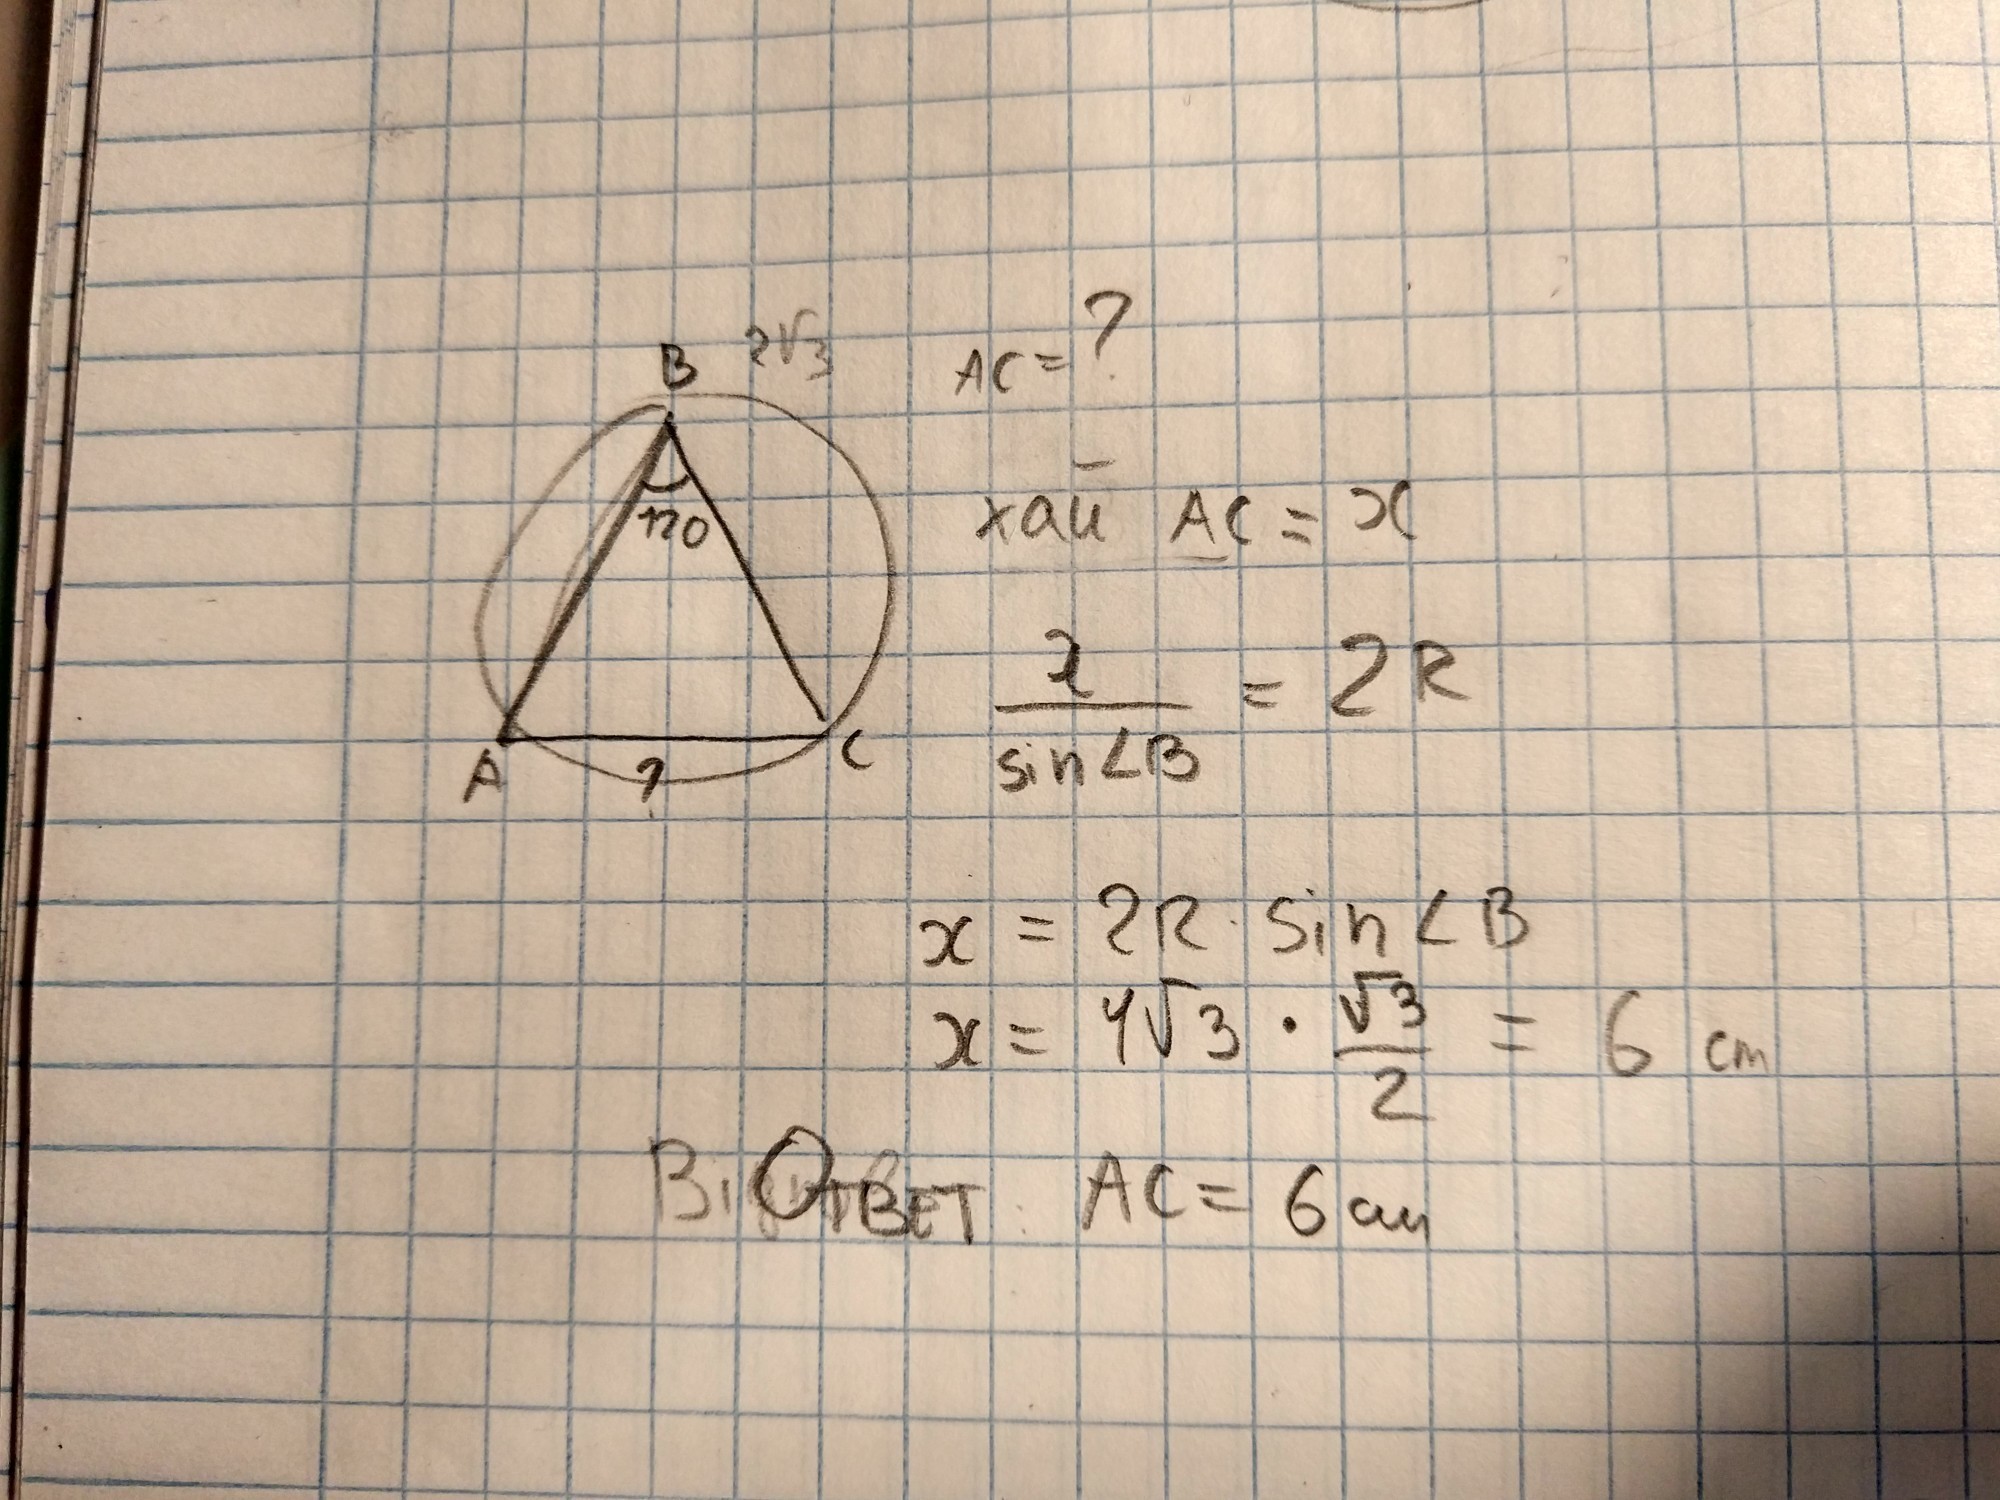 B 2√3
AC = ?
120
хай AC = x
x / sin∠B = 2R
A ? C
x = 2R · sin∠B
x = 4√3 · √3/2 = 6 cm
Ответ: AC = 6 см